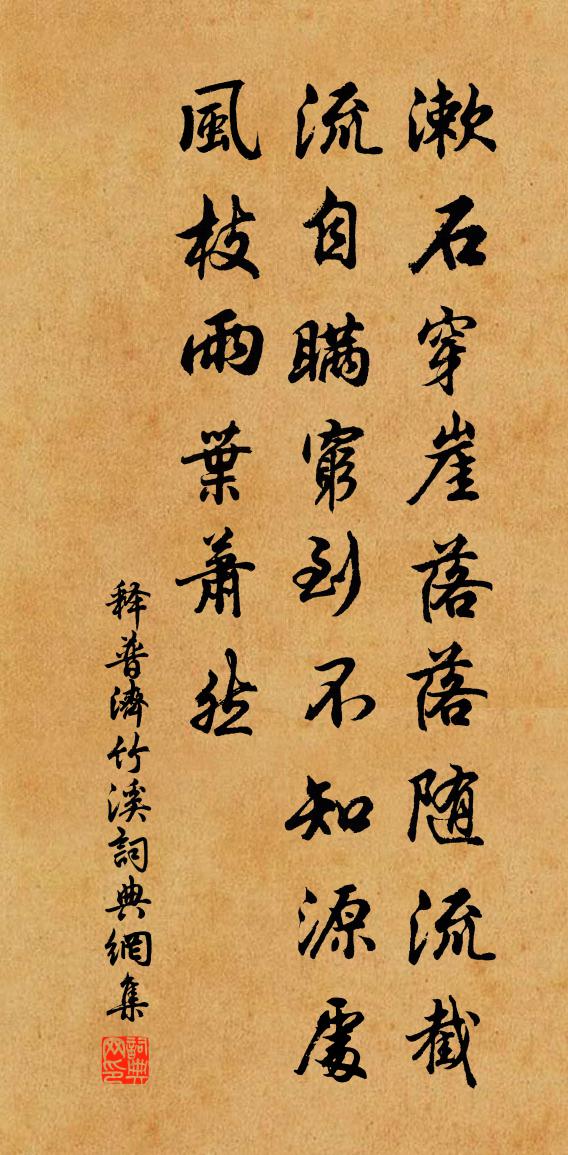 漱石穿崖落落随流截
流自瞞窮到不知源處
風枝雨葉蕭然
释普濟竹溪詞典網集
詞典网印